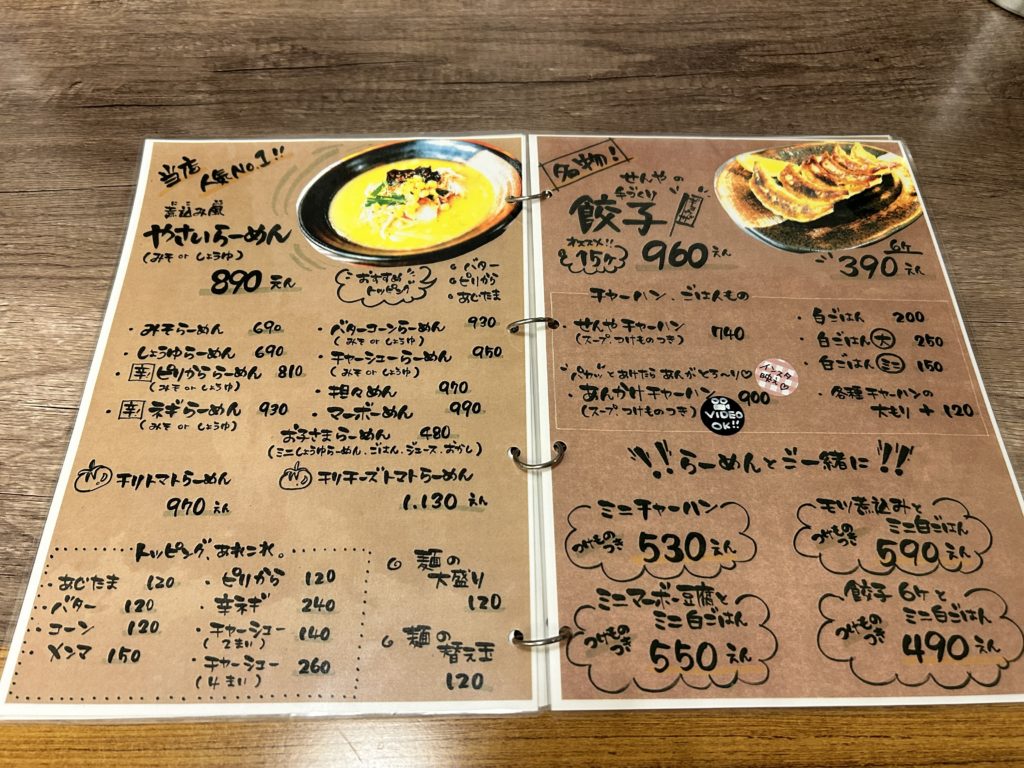 当店
人気No.1!!
煮込み風
やさいらーめん
(みそ or しょうゆ)
890えん
おすすめ
トッピング
バター
ピリから
あじたま
・みそらーめん 690
・しょうゆらーめん 690
・辛ピリかららーめん 810
(みそ or しょうゆ)
・辛ネギらーめん 930
(みそ or しょうゆ)
・バターコーンらーめん 930
(みそ or しょうゆ)
・チャーシューらーめん 950
(みそ or しょうゆ)
・担々めん 970
・マーボーめん 990
お子さまらーめん 480
(ミニしょうゆらーめん、ごはん、ジュース、おかし)
チリトマトらーめん
970えん
チリチーズトマトらーめん
1.130えん
トッピング、あれこれ。
・あじたま 120
・バター 120
・コーン 120
・メンマ 150
・ピリから 120
・辛ネギ 240
・チャーシュー 140
(2まい)
・チャーシュー 260
(4まい)
麺の
大盛り
120
麺の
替え玉
120
名物!
せんやの
手づくり
餃子
オススメ!!
15ケ 960えん
6ケ
390えん
チャーハン、ごはんもの
・せんやチャーハン 740
(スープ、つけものつき)
パカッとあけたらあんがとろ〜り♡
・あんかけチャーハン 900
(スープつけものつき)
インスタ
映え♡
VIDEO
OK!!
・白ごはん 200
・白ごはん大 250
・白ごはんミニ 150
・各種チャーハンの
大もり + 120
!!らーめんとご一緒に!!
ミニチャーハン
つけもの
つき
530えん
モツ煮込みと
ミニ白ごはん
つけもの
つき
590えん
ミニマーボー豆腐と
ミニ白ごはん
つけもの
つき
550えん
餃子6ケと
ミニ白ごはん
つけもの
つき
490えん